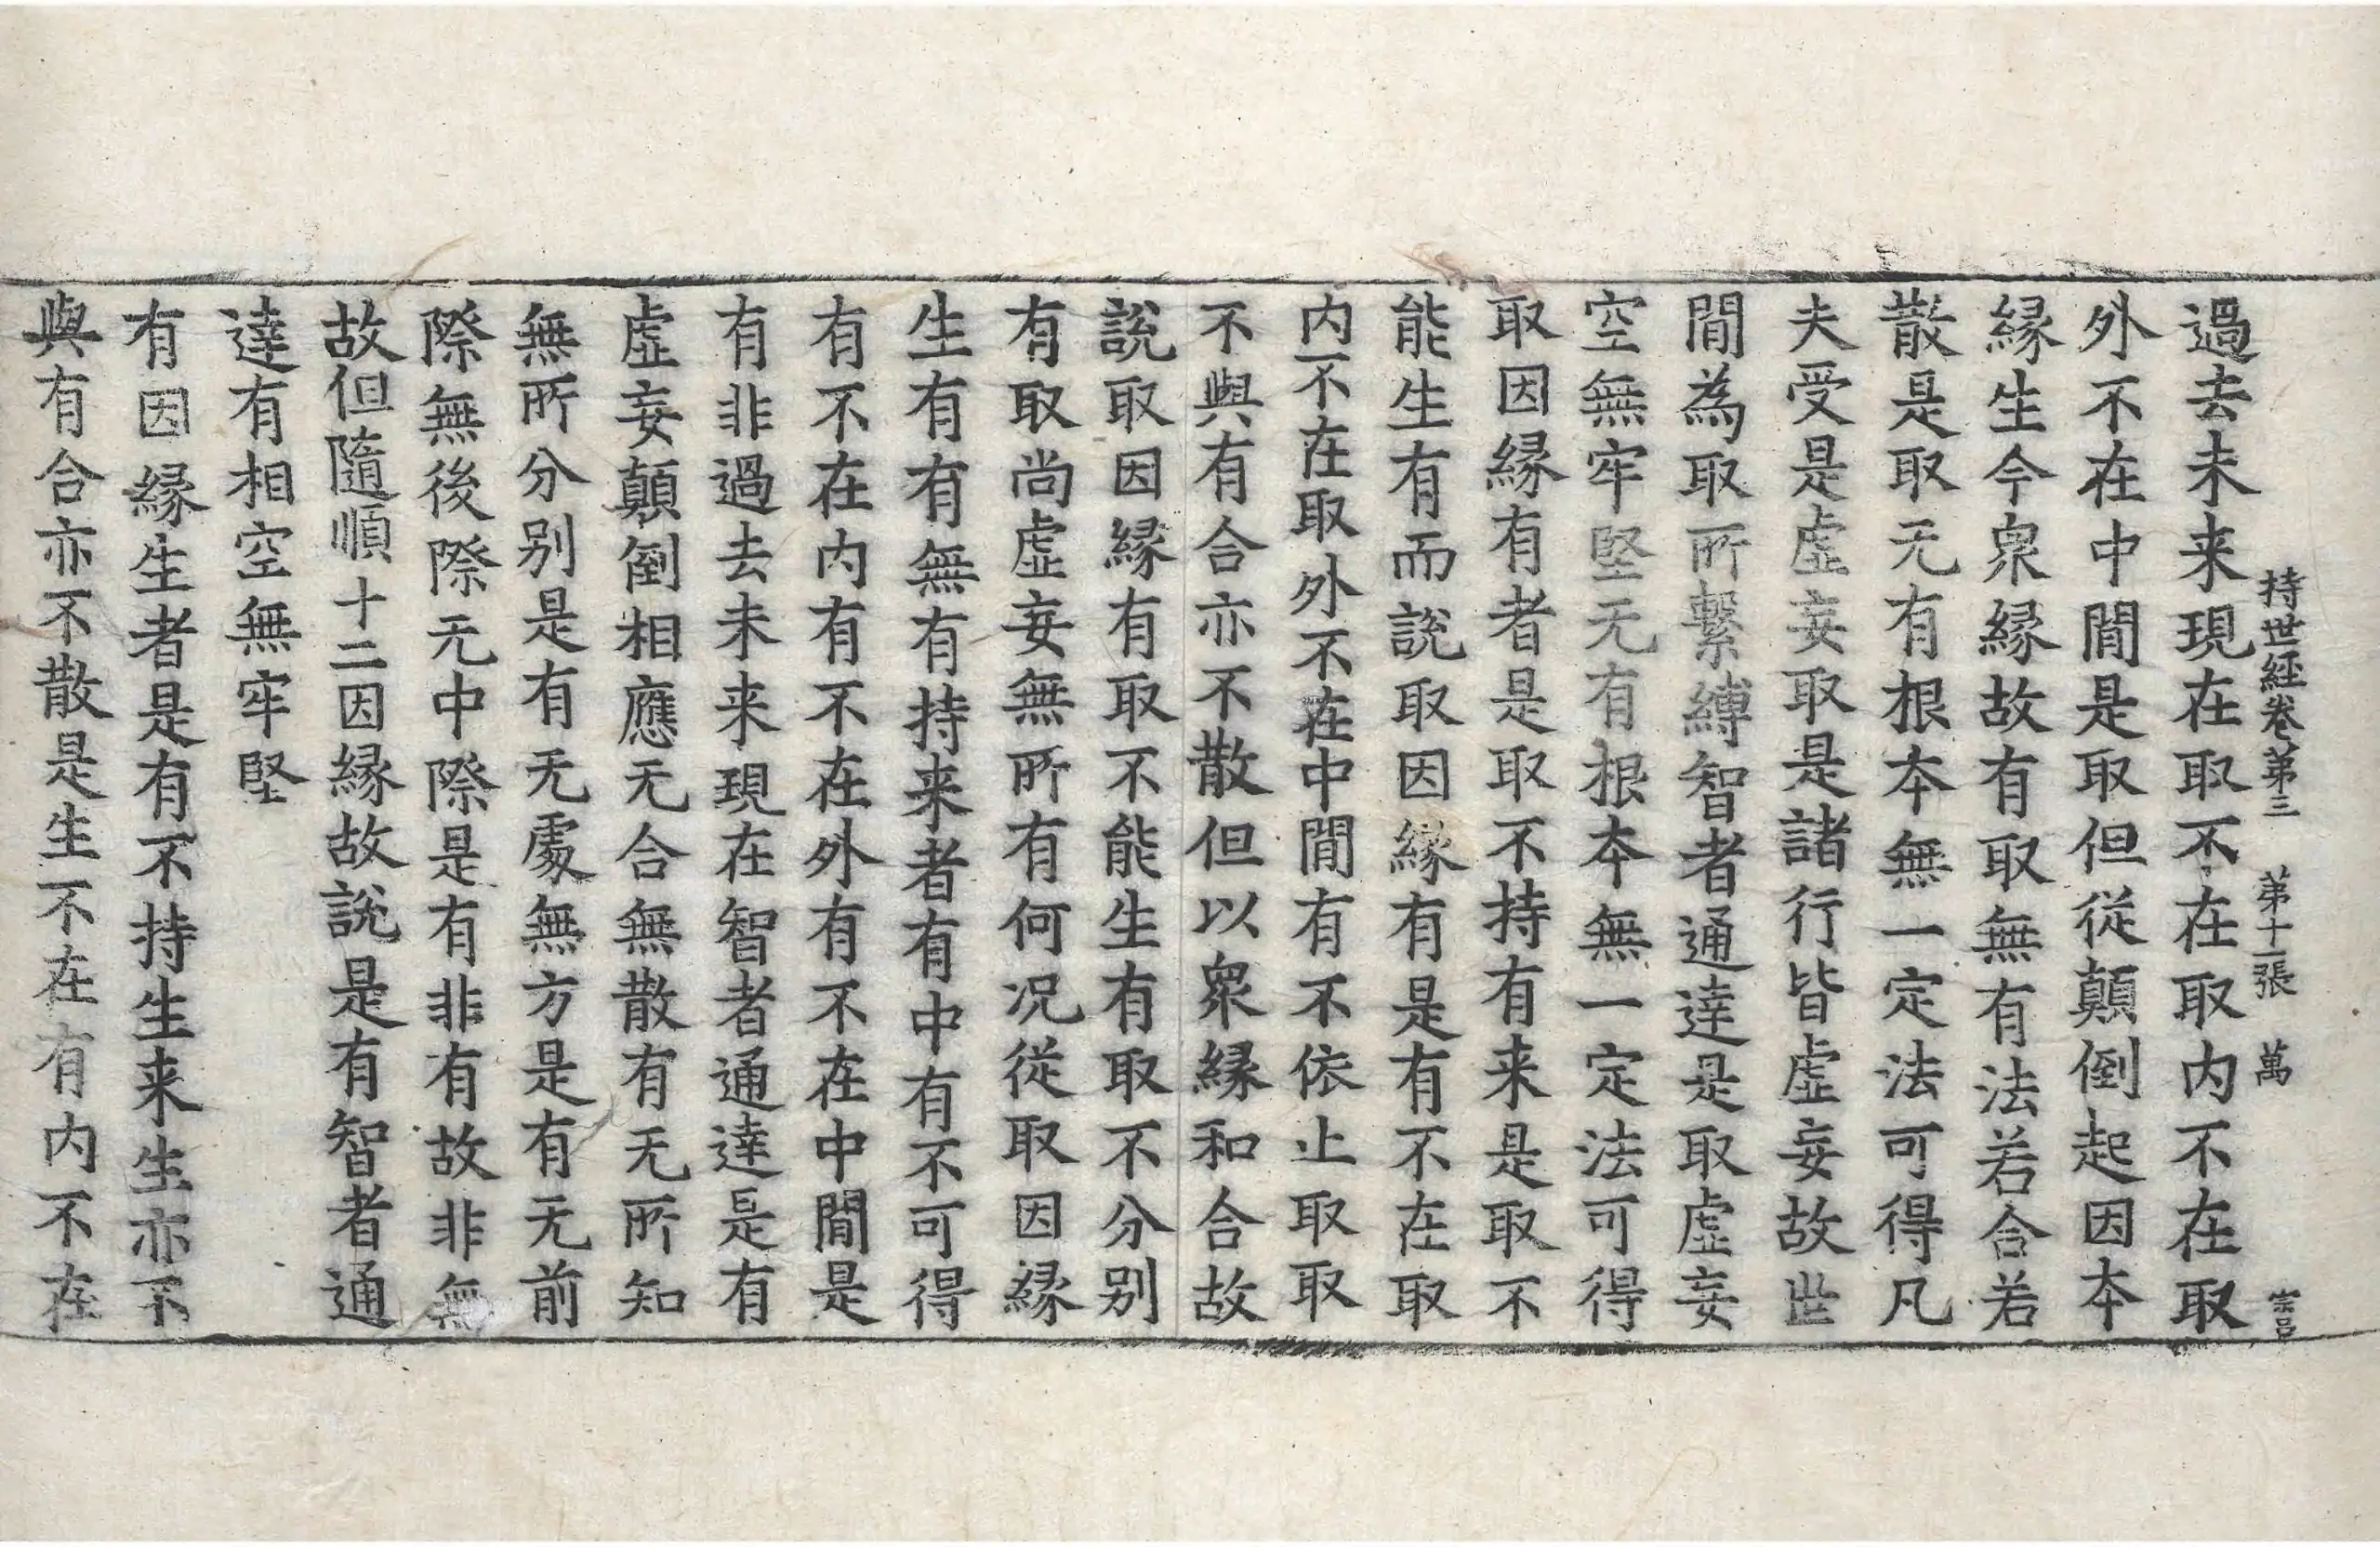 持世經卷第三 第十二張 萬
過去未来現在取不在取内不在取
外不在中間是取但從顛倒起因本
縁生今衆縁故有取無有法若合若
散是取无有根本無一定法可得凡
夫受是虛妄取是諸行皆虛妄故世
間為取所繫縛智者通達是取虛妄
空無牢堅无有根本無一定法可得
取因縁有者是取不持有来是取不
能生有而說取因縁有是有不在取
内不在取外不在中間有不依止取取
不與有合亦不散但以衆縁和合故
說取因縁有取不能生有取不分別
有取尚虛妄無所有何况從取因縁
生有有無有持来者有中有不可得
有不在内有不在外有不在中間是
有非過去未来現在智者通達是有
虛妄顛倒相應无合無散有无所知
無所分別是有无處無方是有无前
際無後際无中際是有非有故非無
故但隨順十二因縁故說是有智者通
達有相空無牢堅
有因縁生者是有不持生来生亦不
與有合亦不散是生不在有内不在